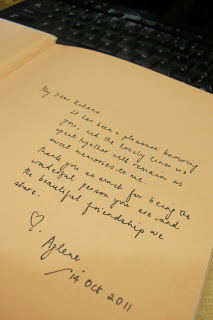 My Dear
It has been a pleasure knowing
you, and the lovely times we
spent together will remain as
sweet memories to me.
Thank you so much for being the
wonderful person you are and
the beautiful friendship we
share.
Aylene
14 Oct 2011